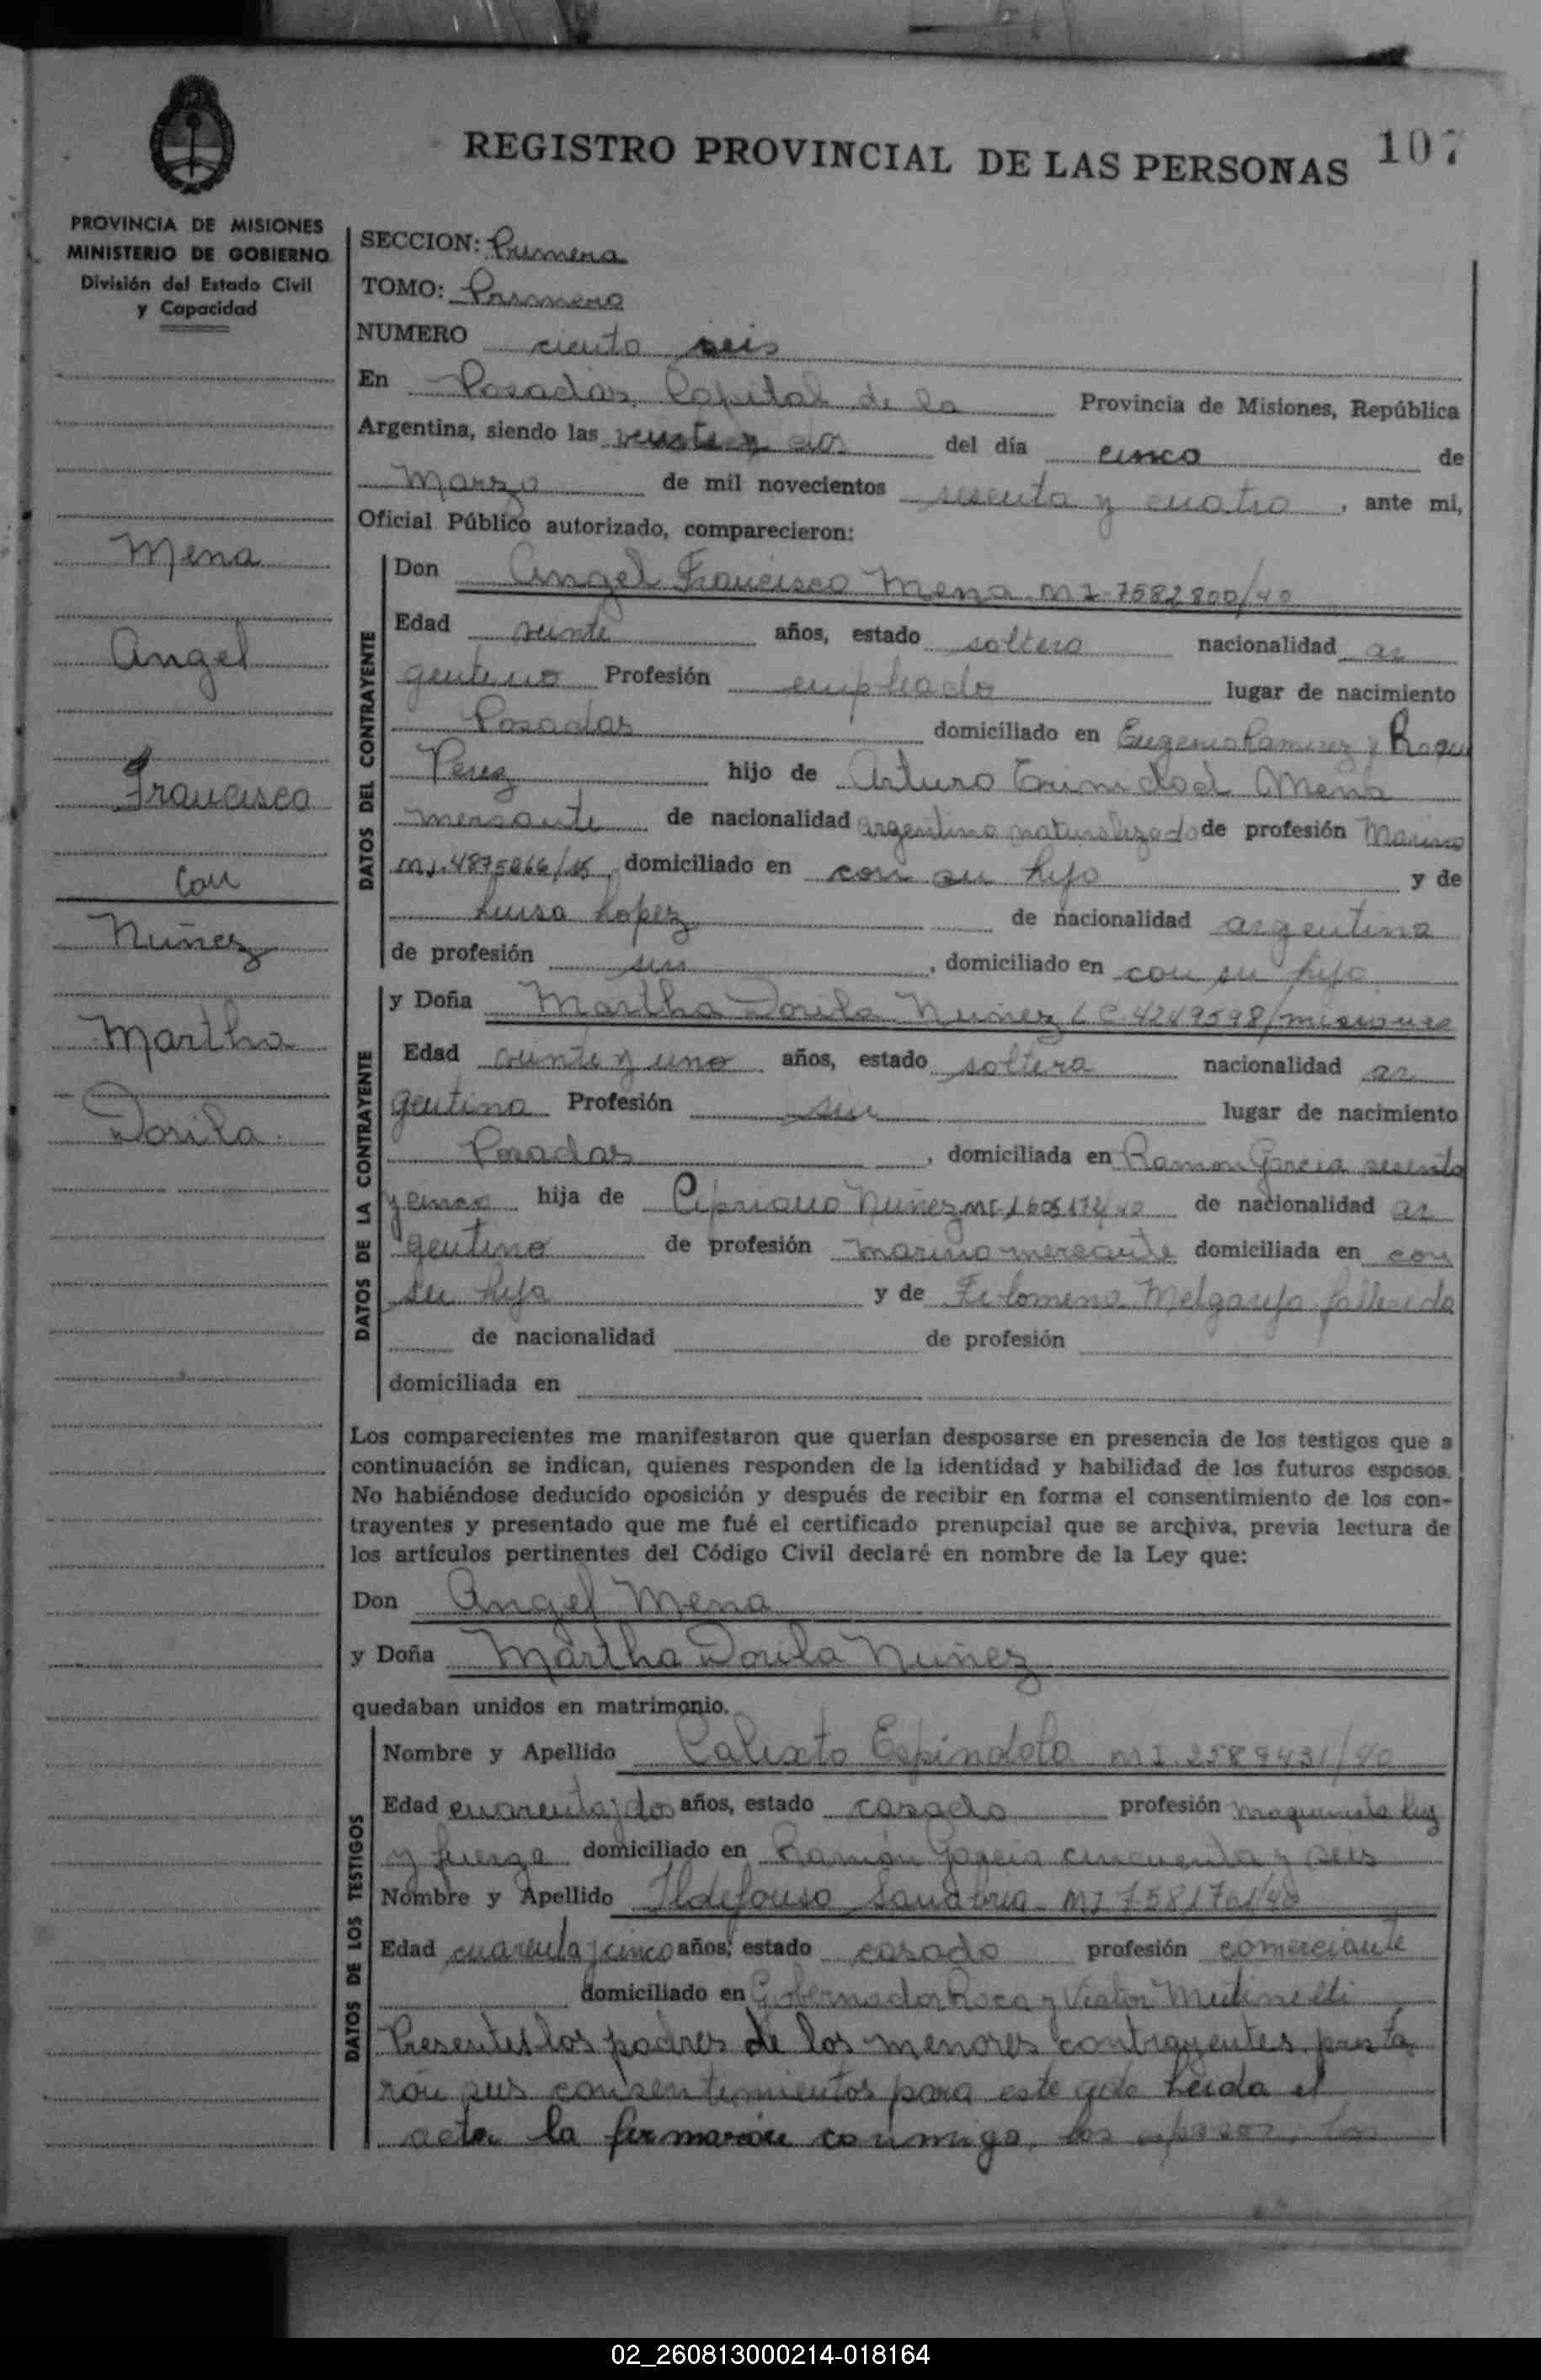 REGISTRO PROVINCIAL DE LAS PERSONAS 107
PROVINCIA DE MISIONES
MINISTERIO DE GOBIERNO
División del Estado Civil
y Capacidad
Mena
Angel
Francisco
con
Nuñez
Martha
Dorila
SECCION: Primera
TOMO: Primero
NUMERO ciento seis
En Posadas, Capital de la Provincia de Misiones, República
Argentina, siendo las veinte y dos del día cinco de
Marzo de mil novecientos sesenta y cuatro, ante mi,
Oficial Público autorizado, comparecieron:
DATOS DEL CONTRAYENTE
Don Angel Francisco Mena M I 7582800/40
Edad veinte años, estado soltero nacionalidad ar
gentino Profesión empleado lugar de nacimiento
Posadas domiciliado en Eugenio Ramirez y Roque
Perez hijo de Arturo Trinidad Mena
mercante de nacionalidad argentino naturalizado de profesión Marino
M I. 4875266/15, domiciliado en con su hijo y de
Luisa Lopez de nacionalidad argentina
de profesión sin, domiciliado en con su hijo
DATOS DE LA CONTRAYENTE
y Doña Martha Dorila Nuñez L C 4249598/misiones
Edad veinte y uno años, estado soltera nacionalidad ar
gentina Profesión sin lugar de nacimiento
Posadas, domiciliada en Ramon Garcia sesenta
y cinco hija de Cipriano Nuñez de nacionalidad ar
gentino de profesión marino mercante domiciliada en con
su hija y de Filomena Melgarejo fallecida
de nacionalidad de profesión
domiciliada en
Los comparecientes me manifestaron que querían desposarse en presencia de los testigos que a
continuación se indican, quienes responden de la identidad y habilidad de los futuros esposos.
No habiéndose deducido oposición y después de recibir en forma el consentimiento de los con-
trayentes y presentado que me fué el certificado prenupcial que se archiva, previa lectura de
los artículos pertinentes del Código Civil declaré en nombre de la Ley que:
Don Angel Mena
y Doña Martha Dorila Nuñez
quedaban unidos en matrimonio.
DATOS DE LOS TESTIGOS
Nombre y Apellido Calixto Espindola M I. 2589431/40
Edad cuarenta y dos años, estado casado profesión maquinista luz
y fuerza domiciliado en Ramón Garcia cincuenta y seis
Nombre y Apellido Ildefonso Sanabria M I 7581761/40
Edad cuarenta y cinco años, estado casado profesión comerciante
domiciliado en Gobernador Roca y Victor Mutinelli
Presentes los padres de los menores contrayentes presta
ron sus consentimientos para este acto Leida el
acta la firmaron conmigo, los esposos, los
02_260813000214-018164